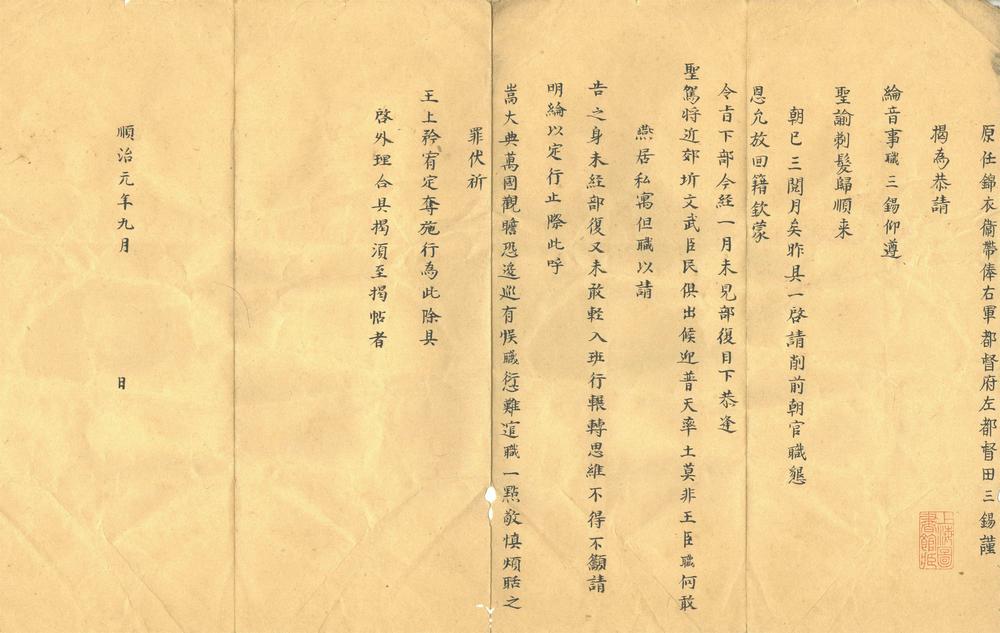 原任錦衣衞帶俸右軍都督府左都督田三錫謹
揭為恭請
綸音事職三錫仰遵
聖諭剃髮歸順来
朝已三閱月矣昨具一啓請削前朝官職懇
恩允放回籍欽蒙
令旨下部今経一月未見部復目下恭逢
聖駕将近郊圻文武臣民俱出候迎普天率土莫非王臣職何敢
燕居私寓但職以請
告之身未経部復又未敢輕入班行輾轉思維不得不籲請
明綸以定行止際此呼
嵩大典萬國觀瞻恐逡巡有悞職愆難逭職一點敬慎煩聒之
罪伏祈
王上矜宥定奪施行為此除具
啓外理合具揭湏至揭帖者
順治元年九月
日
上海圖書館藏